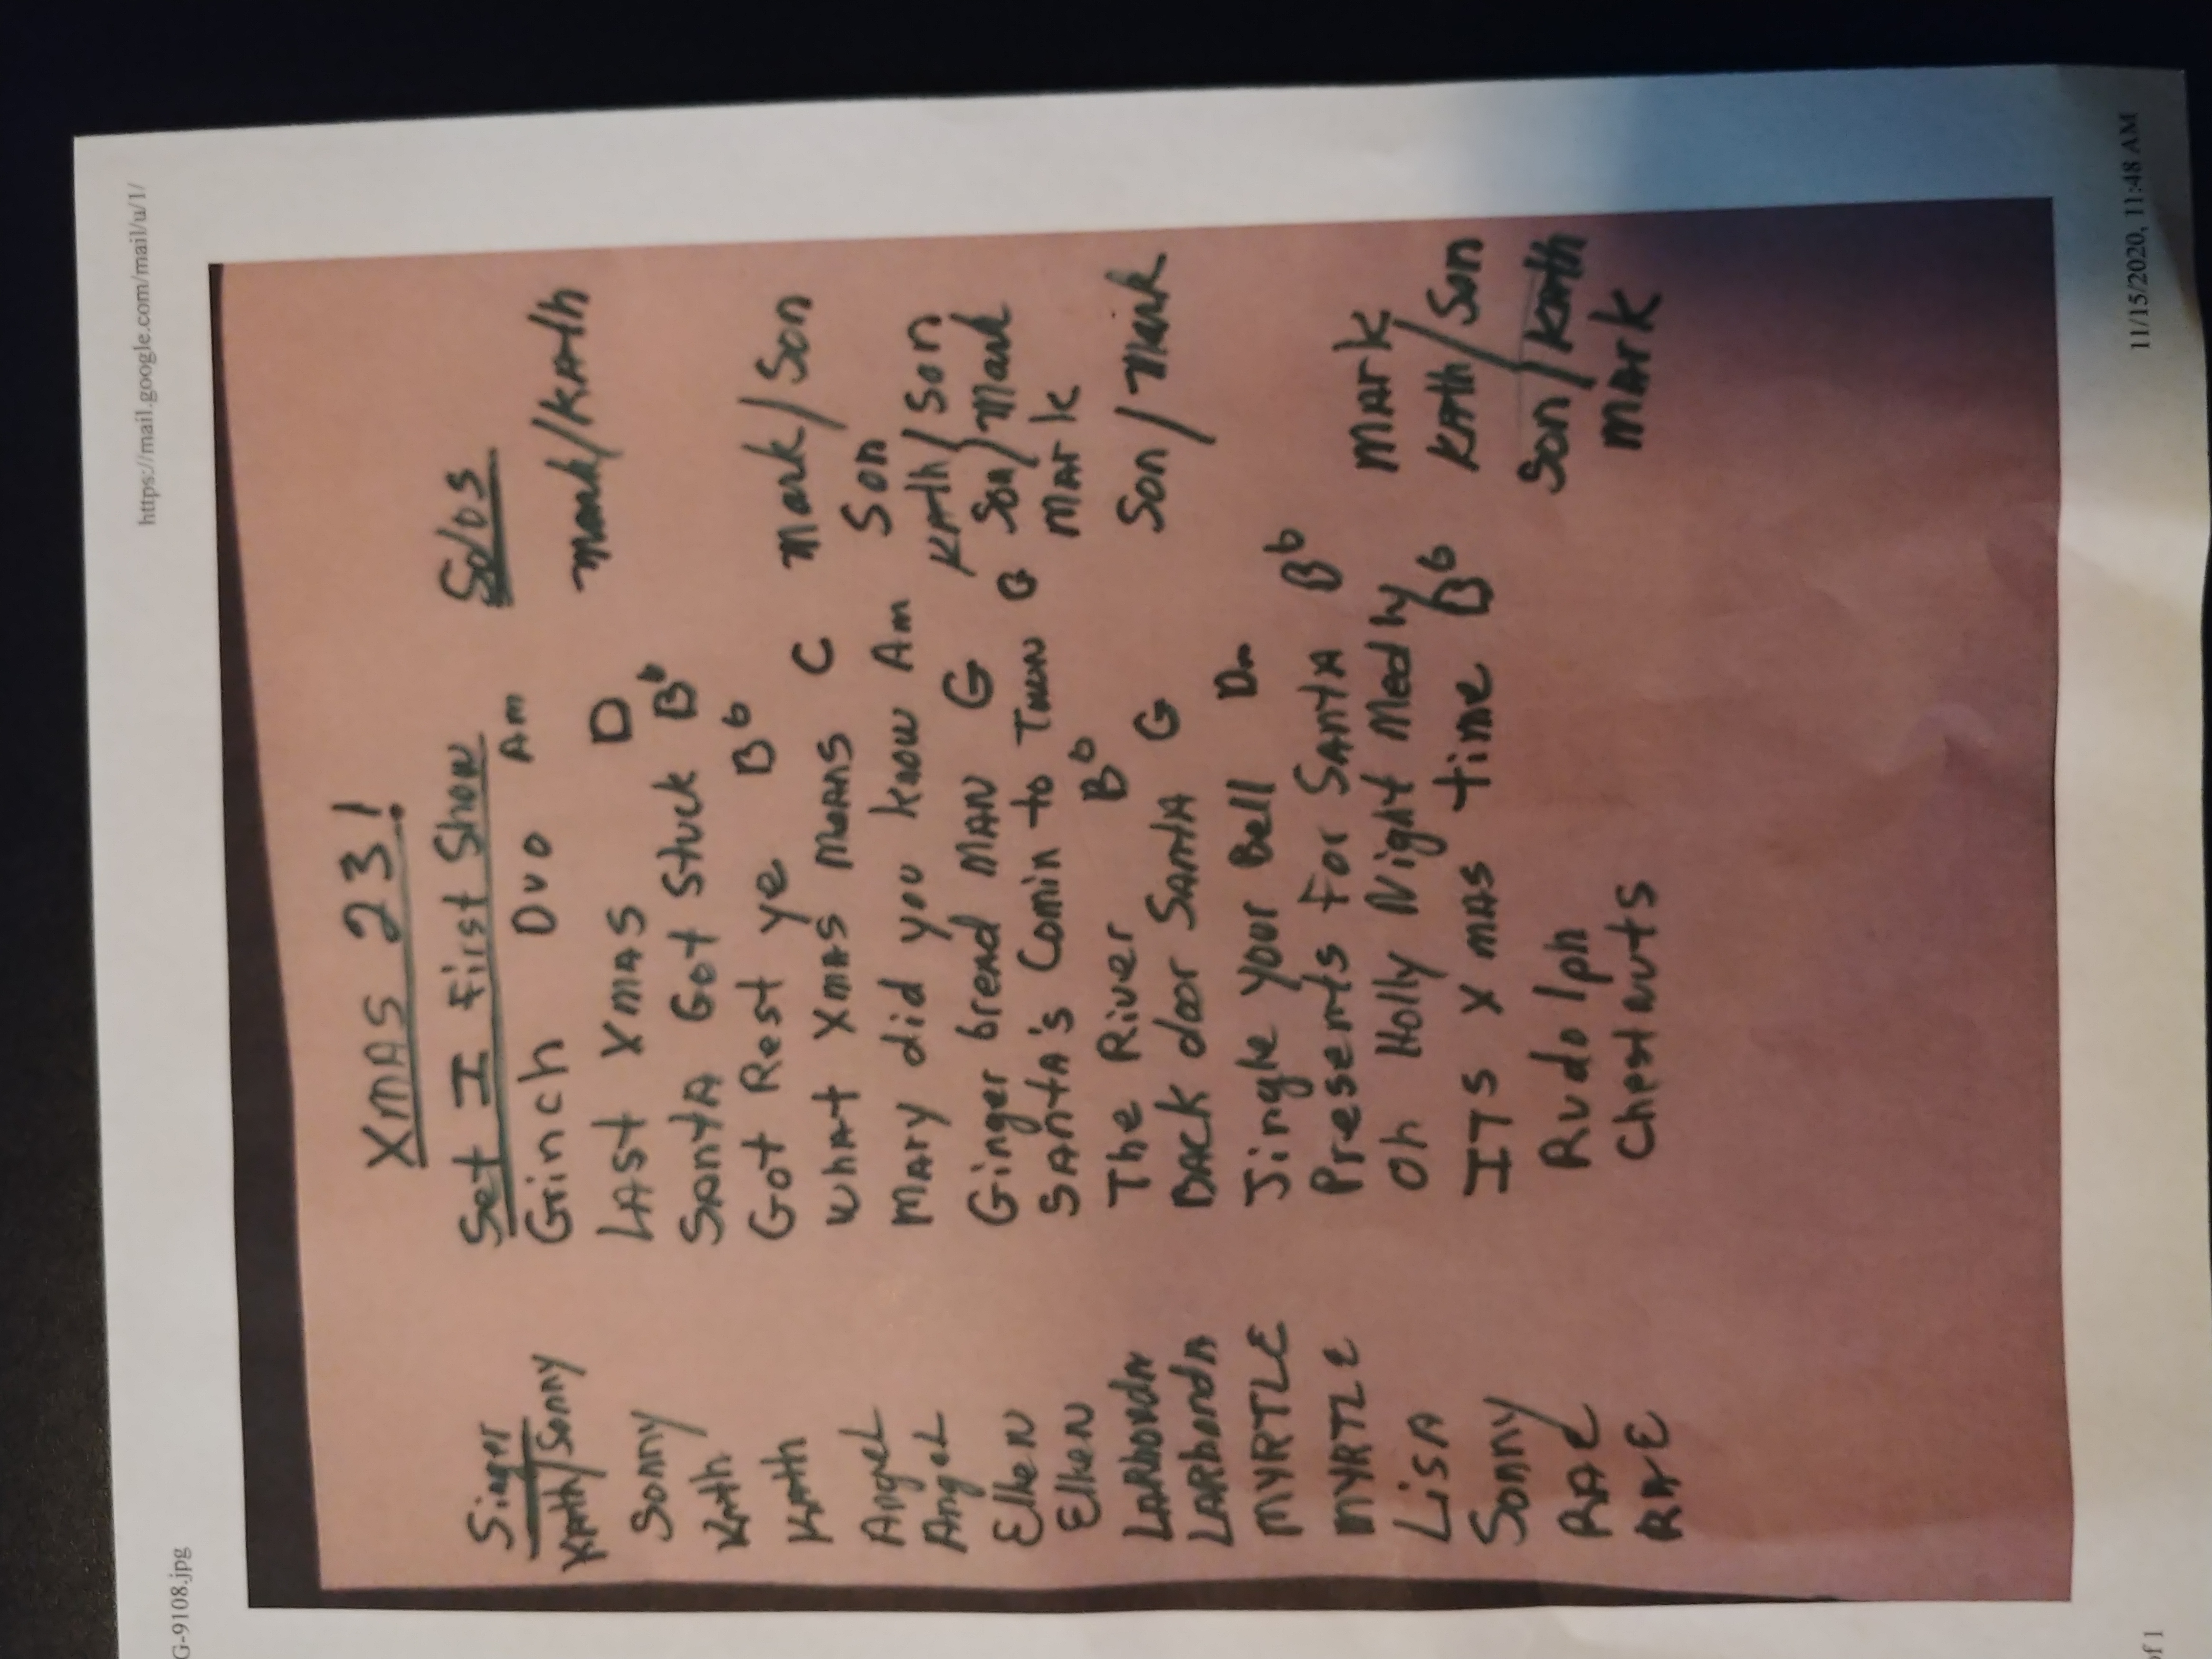 G-9108.jpg https://mail.google.com/mail/u/1/
XMAS 23!
Singer Set I First Show Solos
KATH/Sonny Grinch Duo Am Mark/KATH
Sonny LAST XMAS D
KATH SANTA Got Stuck Bb
KATH Got Rest ye Bb
AngeL WhAT XMAS MeANS C Mark/Son
AngeL MARy did you know Am Son
ElleN Ginger breAd MAN G KATH/Son
ElleN SANTA's Comin to Town G Son/Mark
The River Bb MArk
LARhondA BACk door SANTA G Son/Mark
LARhondA
MYRTLE Jingle your Bell Dm
MYRTLE Presents For SANTA Bb
LiSA Oh Holly Night Medly MArk
Sonny ITS X MAS time Bb KATH/Son
RAE Rudolph Son/KATH
RAE Chestnuts MArk
of 1 11/15/2020, 11:48 AM